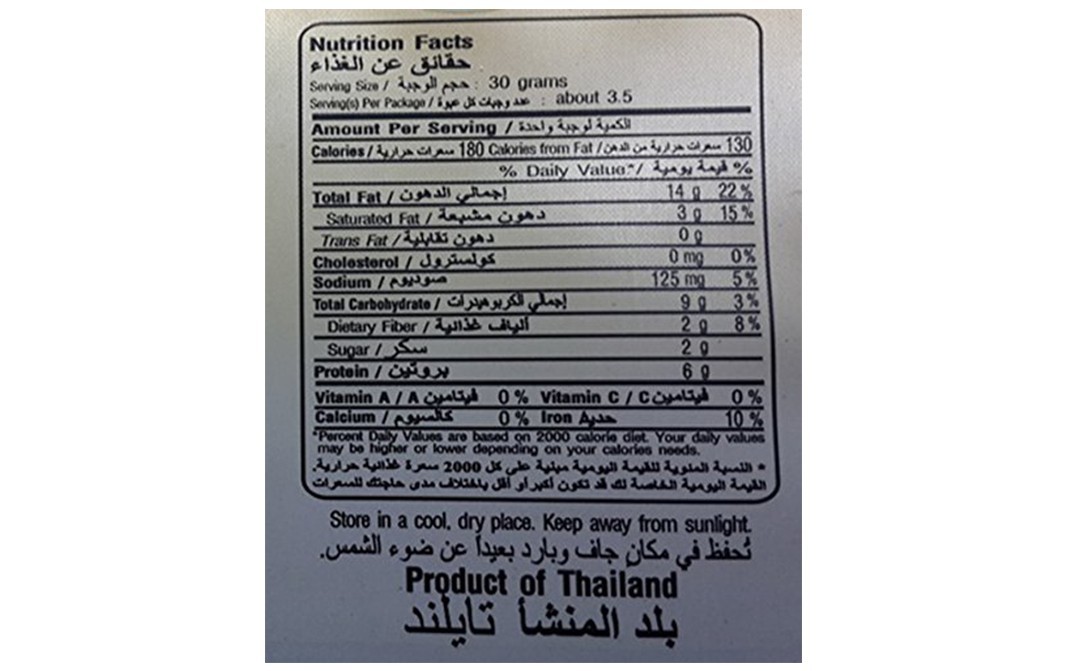 Nutrition Facts
حقائق عن الغذاء
Serving Size / حجم الوجبة : 30 grams
Serving(s) Per Package / عدد وجبات كل عبوة : about 3.5
Amount Per Serving / الكمية لوجبة واحدة
Calories / سعرات حرارية 180 Calories from Fat / سعرات حرارية من الدهن 130
% Daily Value*/ قيمة يومية %
Total Fat / إجمالي الدهون 14 g 22%
Saturated Fat / دهون مشبعة 3 g 15%
Trans Fat / دهون تقابلية 0 g
Cholesterol / كولسترول 0 mg 0%
Sodium / صوديوم 125 mg 5%
Total Carbohydrate / إجمالي الكربوهيدرات 9 g 3%
Dietary Fiber / ألياف غذائية 2 g 8%
Sugar / سكر 2 g
Protein / بروتين 6 g
Vitamin A / A فيتامين 0% Vitamin C / C فيتامين 0%
Calcium / كالسيوم 0% Iron حديد 10%
*Percent Daily Values are based on 2000 calorie diet. Your daily values
may be higher or lower depending on your calories needs.
* النسبة المئوية للقيمة اليومية مبنية على كل 2000 سعرة غذائية حرارية.
القيمة اليومية الخاصة لك قد تكون أكبر أو أقل باختلاف مدى حاجتك للسعرات
Store in a cool, dry place. Keep away from sunlight.
تُحفظ في مكانٍ جاف وبارد بعيداً عن ضوء الشمس.
Product of Thailand
بلد المنشأ تايلند